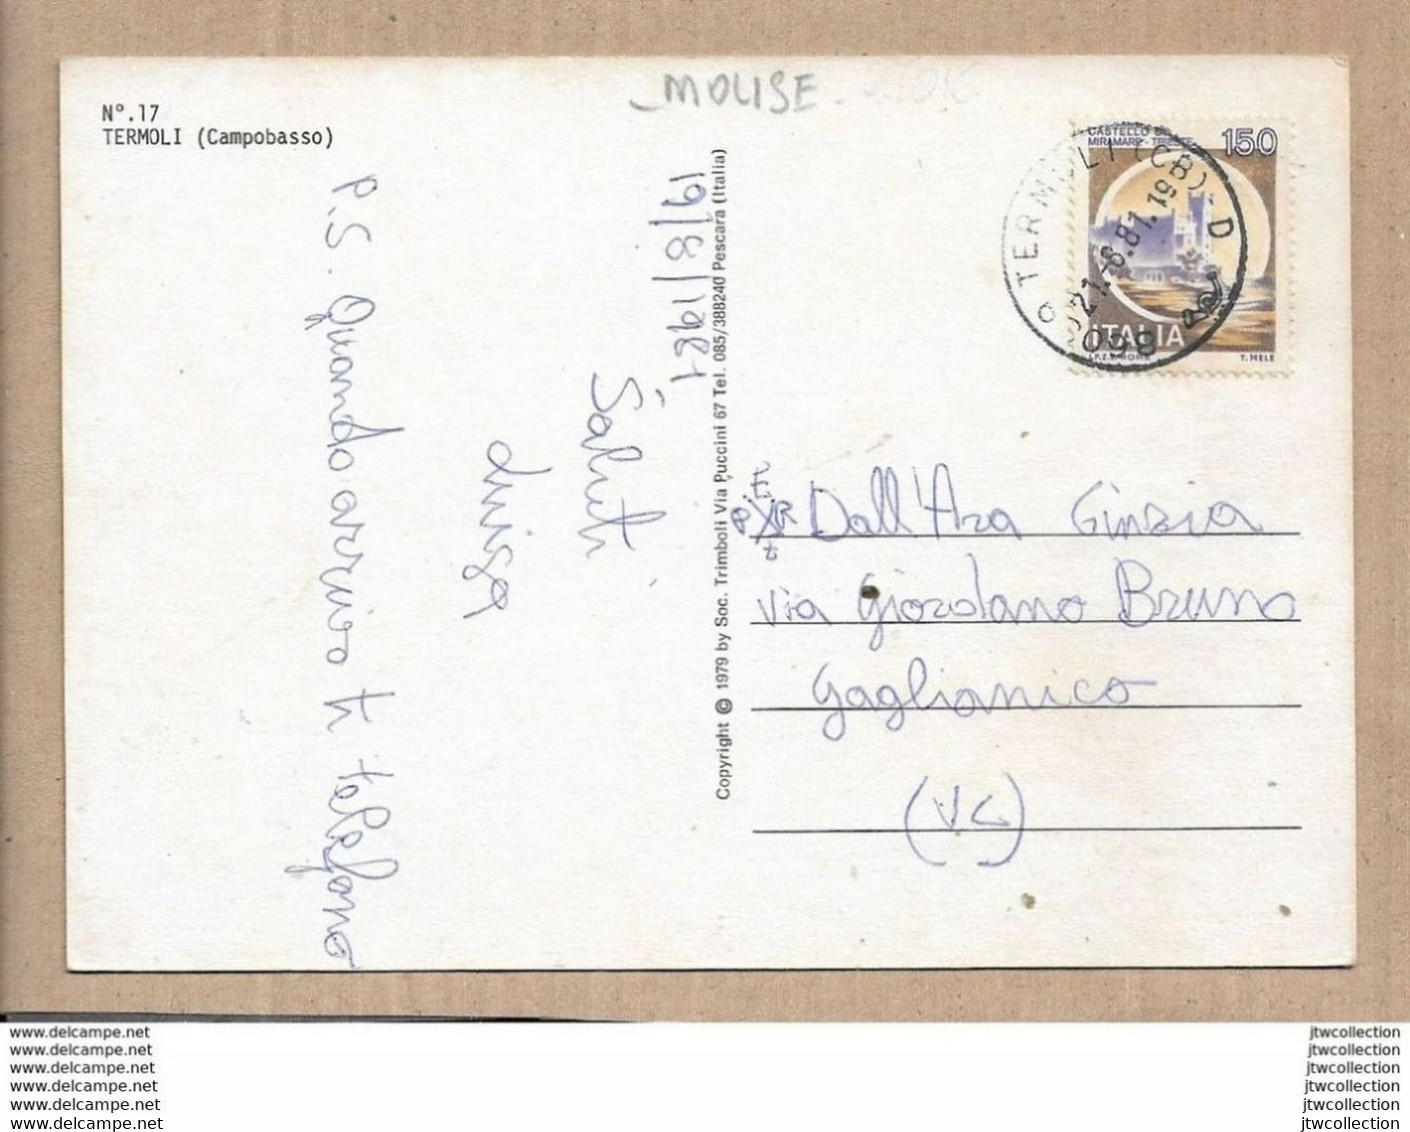 MOLISE
N°.17
TERMOLI (Campobasso)
CASTELLO DI
MIRAMARE - TRIESTE
150
ITALIA
T. MELE
TERMOLI (CB) - D
21.-8.81.19
860
19/8/1981
Saluti
Luisa
P.S. Quando arrivo ti telefono
Copyright © 1979 by Soc. Trimboli Via Puccini 67 Tel. 085/388240 Pescara (Italia)
Dall'Ara Cinzia
via Giordano Bruno
Gaglianico
(VC)
www.delcampe.net
www.delcampe.net
www.delcampe.net
www.delcampe.net
www.delcampe.net
www.delcampe.net
jtwcollection
jtwcollection
jtwcollection
jtwcollection
jtwcollection
jtwcollection